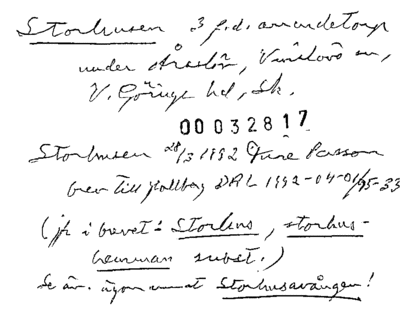 Storhusen 3 f.d. arrendetorp
under Araslöv, Vinslövs sn,
V. Göinge hd, Sk.
00 032817
Storhusen 28/3 1992 Ture Passon
brev till Hallberg DAL 1992-04-01/95-33
(jfr i brevet: Storhus, storhus-
hemman subst.)
Se äv. ägonamnet Storhusavången!